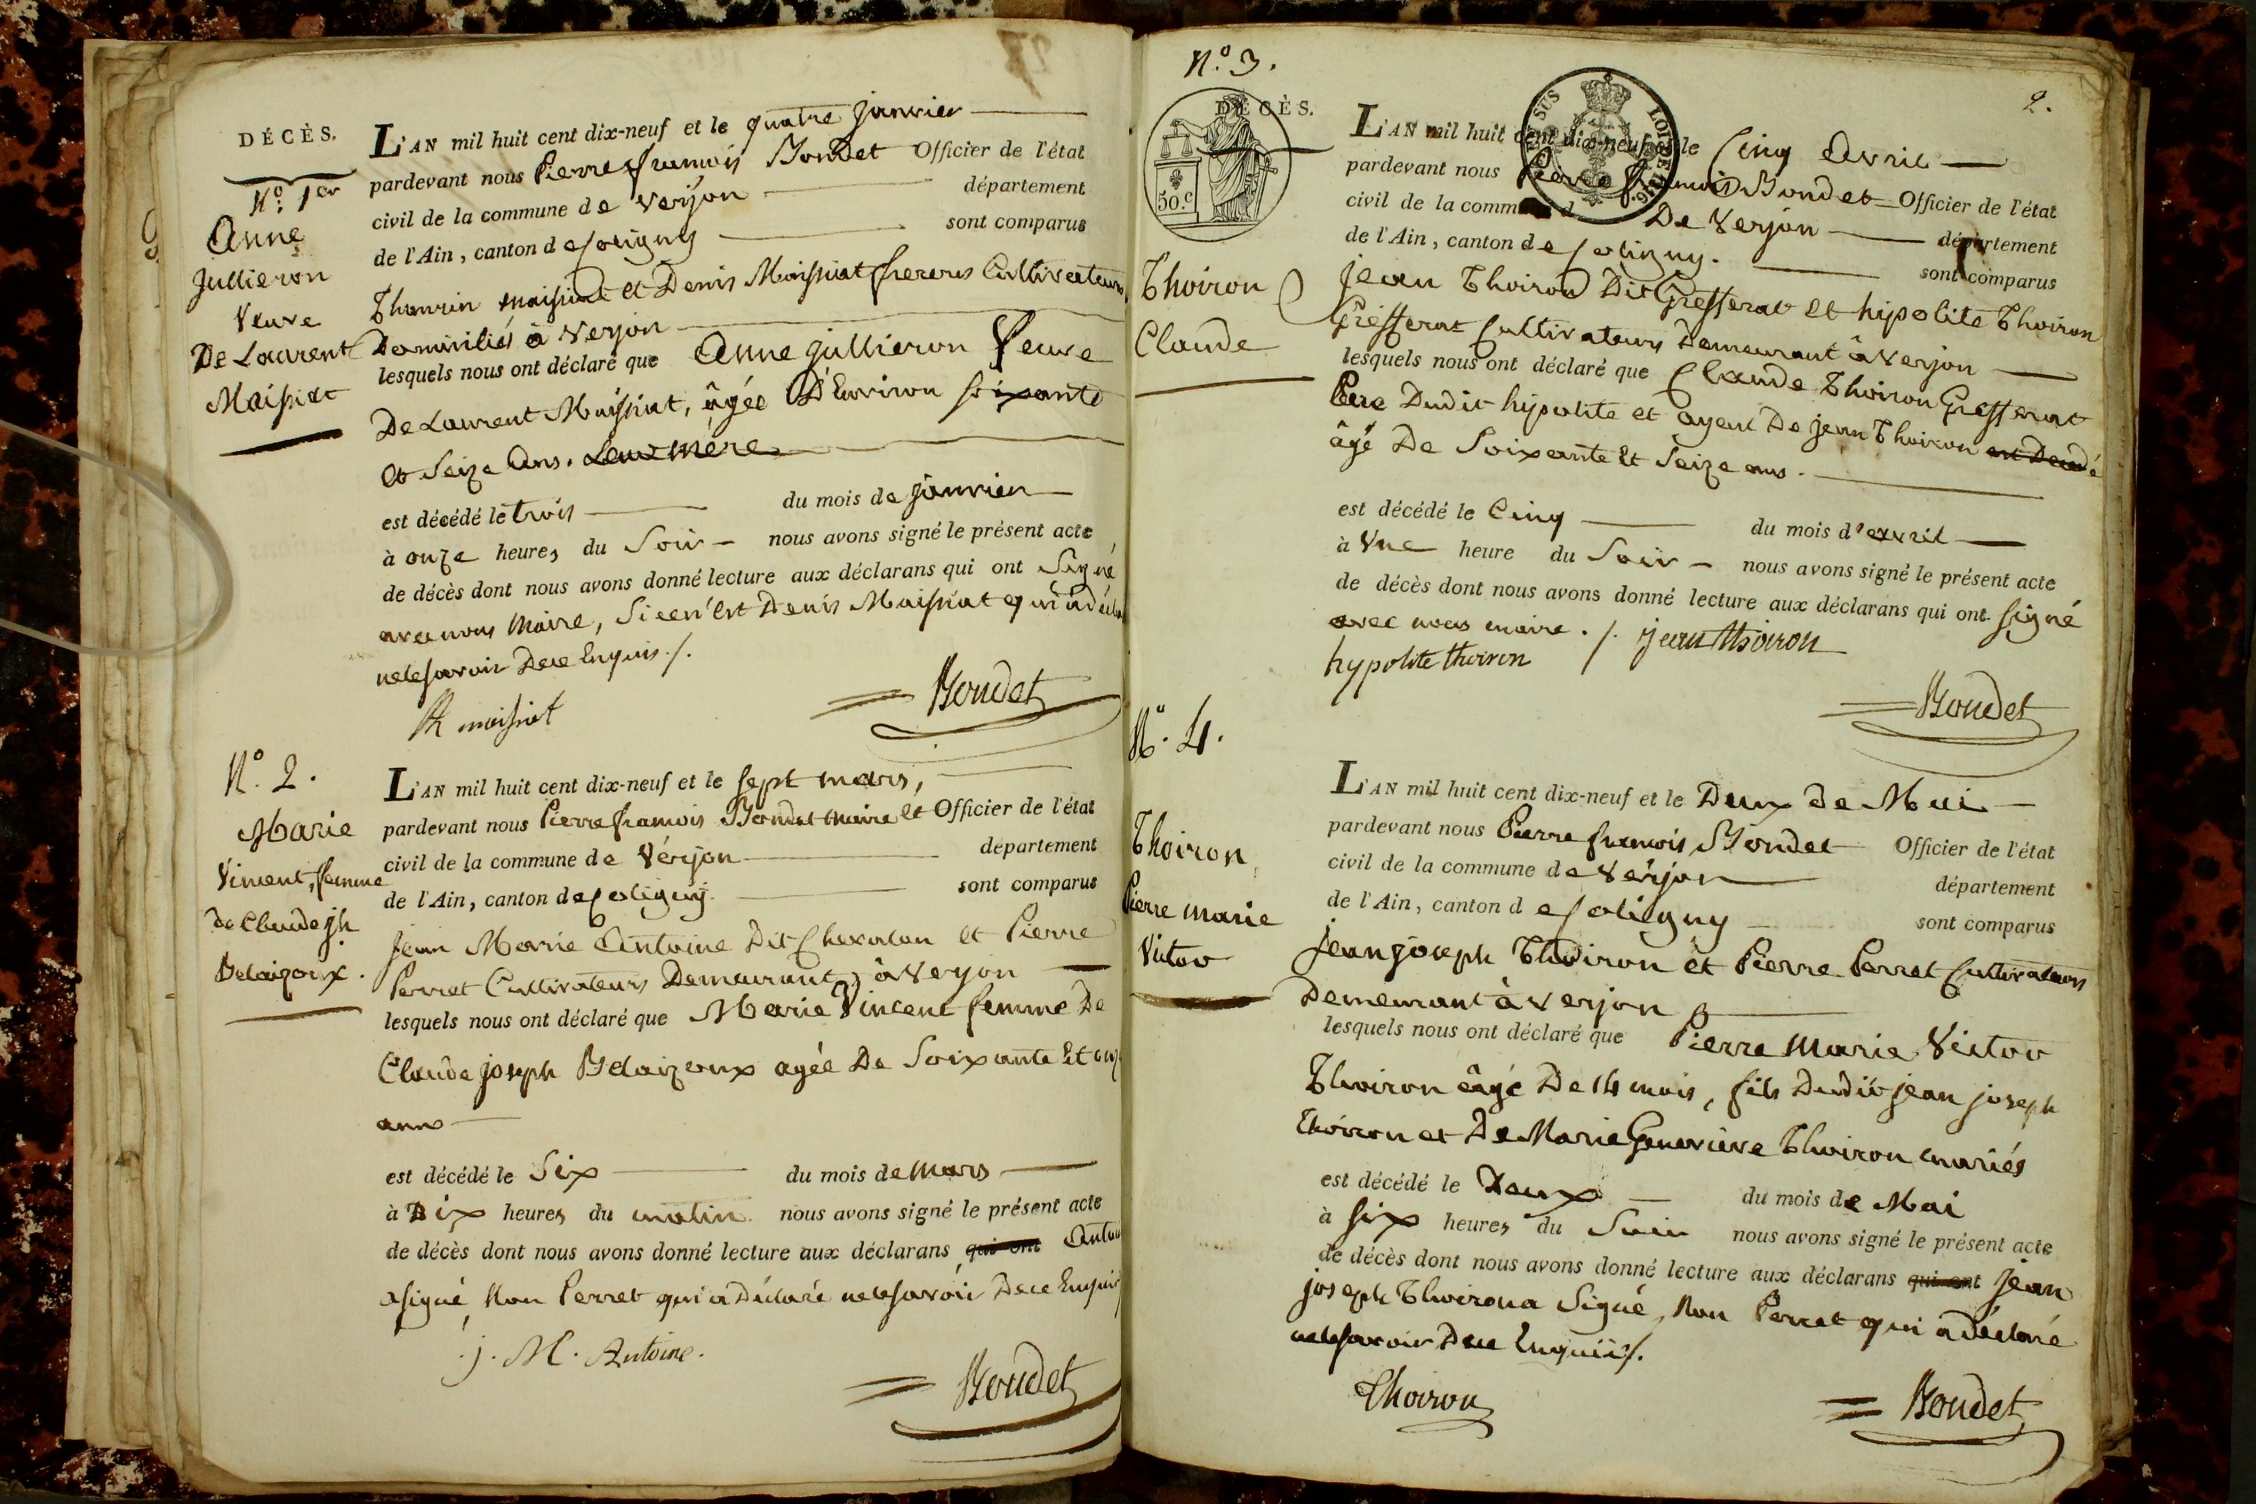 DÉCÈS.
N.º 1er
Anne
Jullieron
Veuve
De Laurent
Maissiat
L'AN mil huit cent dix-neuf et le quatre janvier
pardevant nous Pierre françois Bondet Officier de l'état
civil de la commune de verjon département
de l'Ain, canton de Coligny sont comparus
Thaurin maissiat et Denis Maissiat freres Cultivateurs
Domiciliés à Verjon
lesquels nous ont déclaré que Anne jullieron Veuve
De Laurent Maissiat, âgée D'Environ soixante
et Seize ans. Leur mère
est décédé le trois du mois de janvier
à onze heures du Soir nous avons signé le présent acte
de décès dont nous avons donné lecture aux déclarans qui ont Signé
avec nous Maire, Si ce n'est Denis Maissiat qui a déclaré
ne le savoir De ce Enquis ./.
Th maissiat
Bondet
N.º 2.
Marie
Vincent, femme
de Claude jh
Belaizoux.
L'AN mil huit cent dix-neuf et le sept mars,
pardevant nous Pierre françois Bondet maire et Officier de l'état
civil de la commune de Vérjon département
de l'Ain, canton de Coligny. sont comparus
Jean Marie Antoine Dit Chevalon et Pierre
Perret Cultivateurs Demeurant à Verjon
lesquels nous ont déclaré que Marie Vincent femme De
Claude joseph Belaizoux agée De Soixante Et onze
ans
est décédé le Six du mois de Mars
à Dix heures du matin. nous avons signé le présent acte
de décès dont nous avons donné lecture aux déclarans qui ont Antoine
a signé, Non Perret qui a Déclaré ne le savoir De ce Enquis
j. M. Antoine.
Bondet
N.º 3.
2.
DÉCÈS.
50.c
LOI DE 1816.
Thoiron
Claude
L'AN mil huit cent dix-neuf et le Cinq Avril
pardevant nous Pierre françois Bondet Officier de l'état
civil de la commune d De Verjon département
de l'Ain, canton de Coligny. sont comparus
Jean Thoiron Dit Grefferat et hipolite Thoiron
Grefferat Cultivateurs Demeurant à Verjon
lesquels nous ont déclaré que Claude Thoiron Grefferat
Pere Dudit hipolite et ayeul De jean Thoiron est Decedé
âgé De Soixante Et Seize ans.
est décédé le Cinq du mois d'avril
à Une heure du Soir nous avons signé le présent acte
de décès dont nous avons donné lecture aux déclarans qui ont signé
avec nous maire. /. jean thoiron
hypolite thoiron
Bondet
N.º 4.
Thoiron,
Pierre marie
Victor
L'AN mil huit cent dix-neuf et le Deux de Mai
pardevant nous Pierre françois Bondet Officier de l'état
civil de la commune de Vérjon département
de l'Ain, canton de Coligny sont comparus
jean joseph Thoiron et Pierre Perret Cultivateurs
Demeurant à Verjon
lesquels nous ont déclaré que Pierre Marie Victor
Thoiron âgé De 14 mois, fils Dudit jean joseph
Thoiron et De Marie Genevieve Thoiron mariés
est décédé le Deux du mois de Mai
à six heures du Soir nous avons signé le présent acte
de décès dont nous avons donné lecture aux déclarans qui ont jean
joseph Thoiron a Signé, Non Perret qui a déclaré
ne le savoir De ce Enquis /.
Thoiron
Bondet